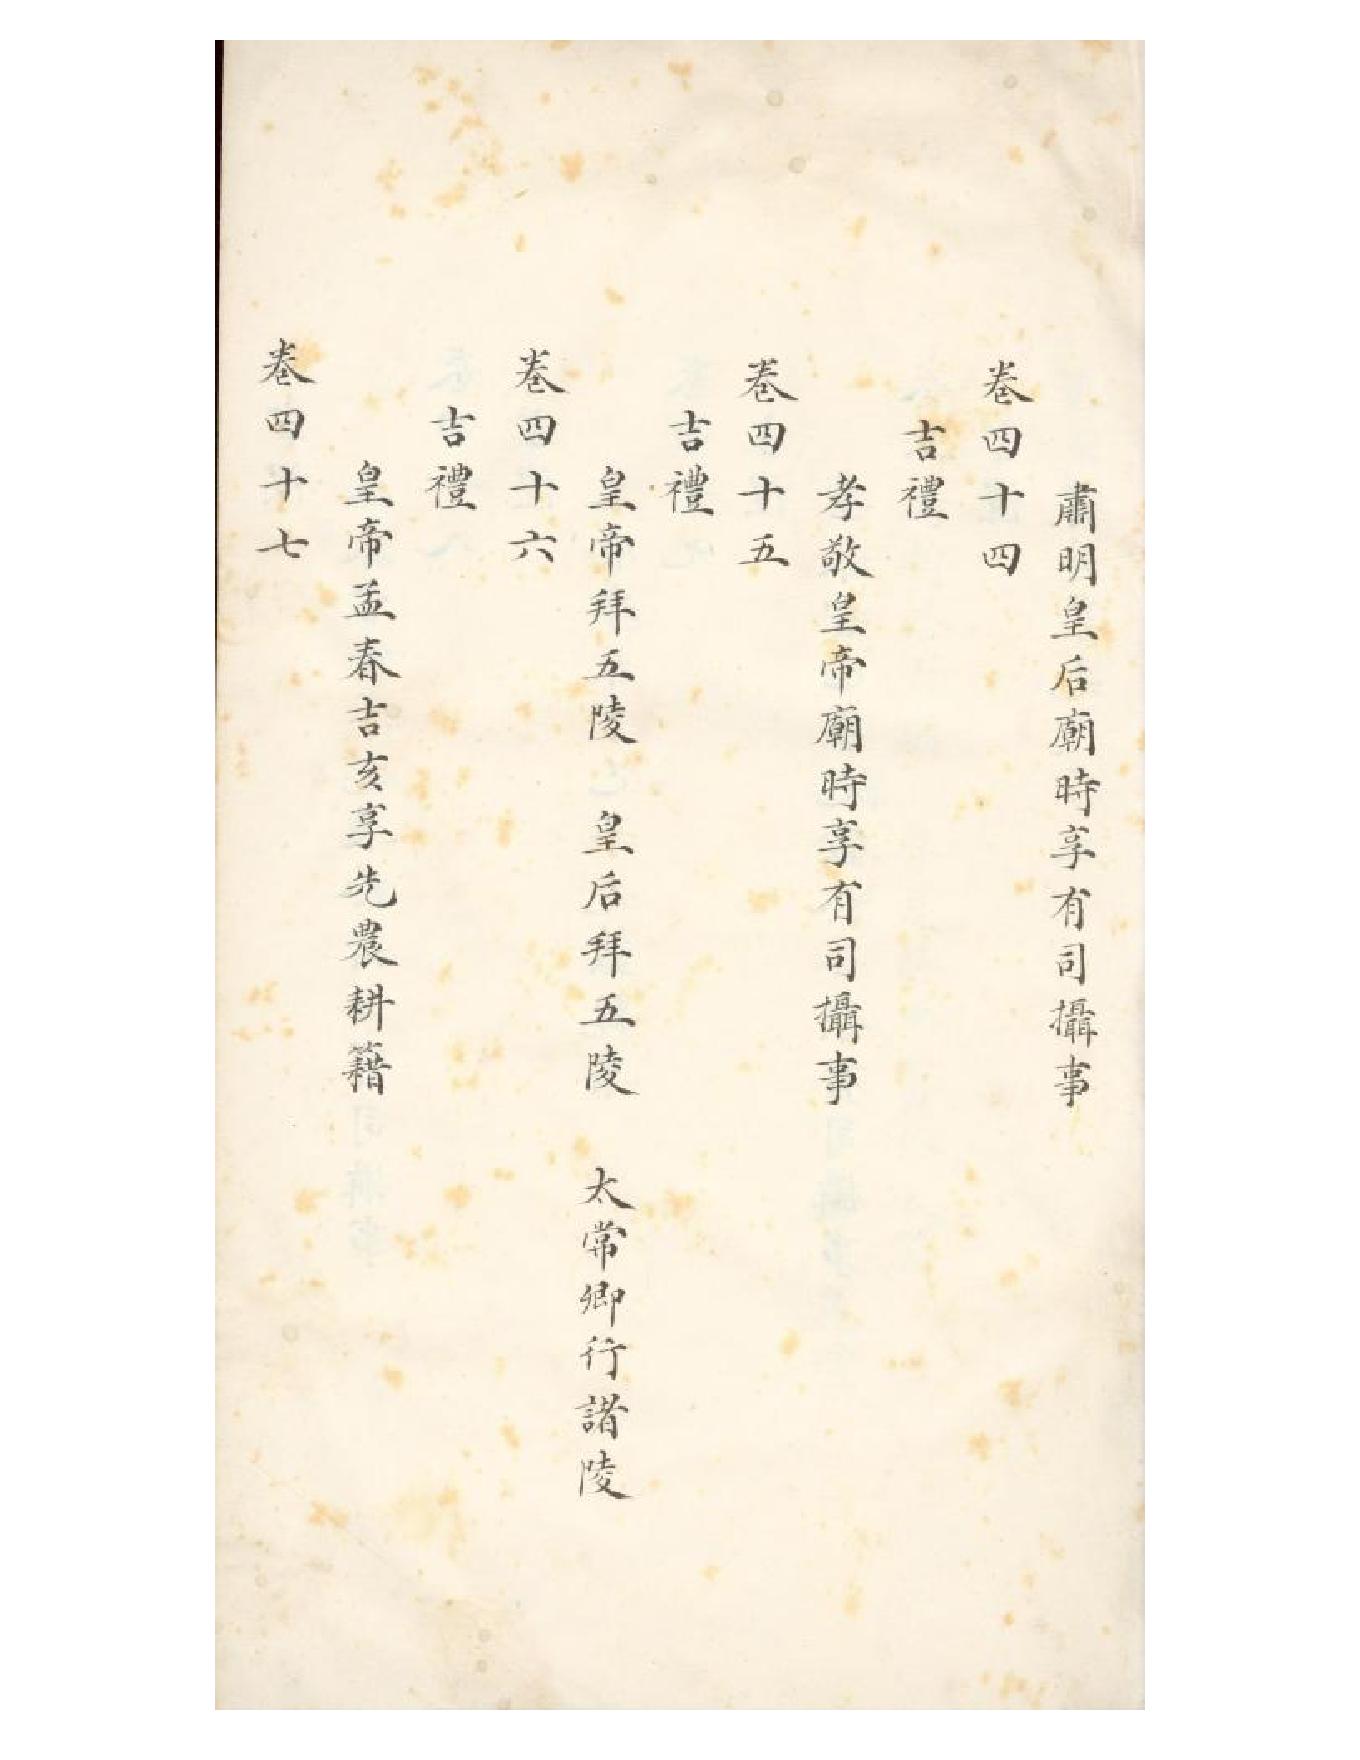 肅明皇后廟時享有司攝事
卷四十四
吉禮
孝敬皇帝廟時享有司攝事
卷四十五
吉禮
皇帝拜五陵　皇后拜五陵　太常卿行諸陵
卷四十六
吉禮
皇帝孟春吉亥享先農耕籍
卷四十七